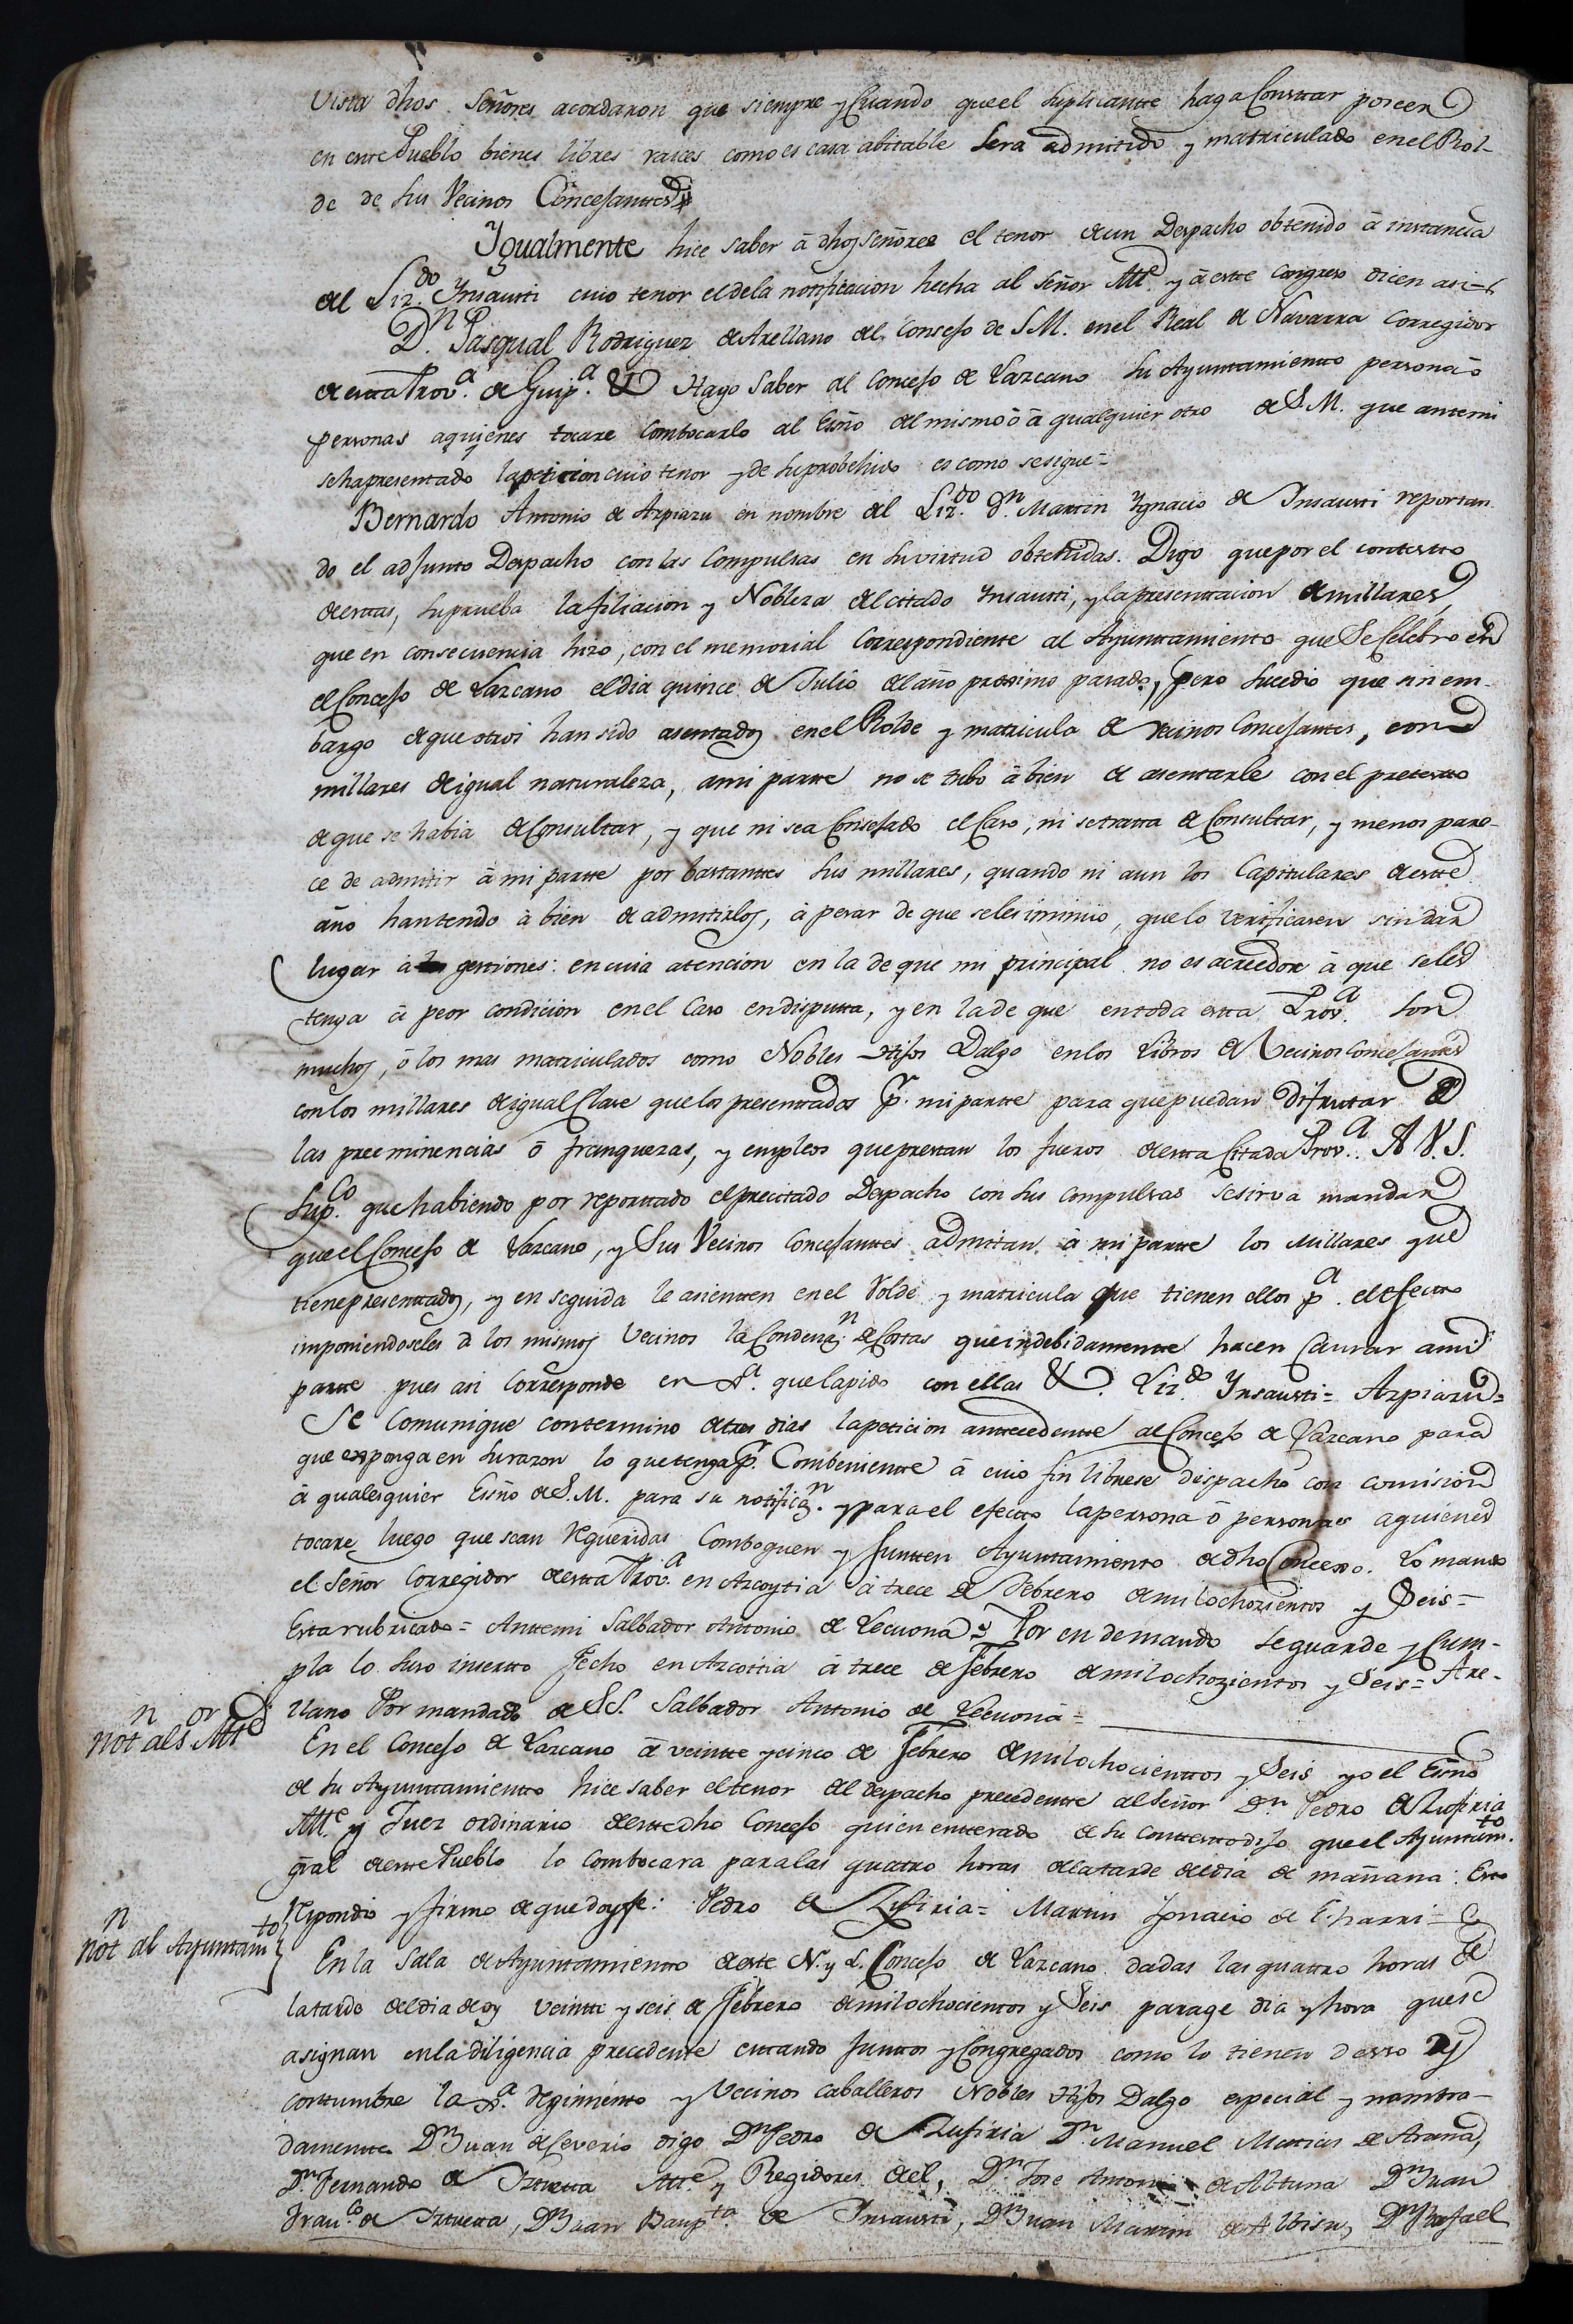 Vista dhos. Señores acordaron que siempre y Cuando que el Suplicantte haga Consttar poseer
en este Pueblo bienes libres raices como es casa abitable Sera admitido y matriculado en el Rol-
de de sus Vecinos Concejanttes
Ygualmente hice saber â dhos Señores el tenor de un Despacho obtenido â instancia
del Liz.do Ynsausti cuio tenor el de la notificacion hecha al Señor Alle. y â estte Congreso dicen asi=
D.n Pasqual Rodriguez de Arellano del Consejo de S.M. en el Real de Navarra Corregidor
de estta Prov.a de Guip.a &a Hago Saber al Concejo de Lazcano su Ayunttamientto persona ô
personas aquienes tocare Combocarlo al Essno del mismo ô â qualquier otro de S.M. que antemi
se ha presentado la peticion cuio tenor y de su probehido es como se sigue=
Bernardo Antonio de Azpiazu en nombre del Liz.do D.n Martin Ygnacio de Ynsausti reportan
do el adjunto Despacho con las Compulsas en su virtud obtenidas. Digo que por el contestto
de esttas, se prueba la filiacion y Nobleza del citado Ynsausti, y la presenttacion de millares,
que en consecuencia hizo, con el memorial Correspondiente al Ayunttamiento que Se Celebro en
el Concejo de Lazcano el dia quince de Julio del año procsimo pasado, pero sucedio que sin em-
bargo de que otros han sido asentados en el Rolde y matricula de Vecinos Concejantes, con
millares de igual naturaleza, ami partte no se tubo â bien de asentarle con el pretestto
de que se habia de Consultar, y que ni sea Consejado el Caso, ni se tratta de Consultar, y menos pare-
ce de admitir â mi partte por basttanttes sus millares, quando ni aun los Capitulares de estte
año han tenido â bien de admitirlos, â pesar de que seles intimio, que lo verificasen sin dar
lugar â gestiones: en cuia atencion en la de que mi principal no es acreedor â que sele
tenga â peor condicion en el Caso en disputta, y en la de que en toda estta Prov.a son
muchos, ô los mas matriculados como Nobles Hijos Dalgo en los Libros de Vecinos Concejantes
con los millares de igual Clase que los presenttados p.r mi partte para que puedan disfrutar de
las preeminencias ô franquezas, y empleos que presttan los fueros de estta Citada Prov.a. A V.S.
Sup.co que habiendo por reporttado el precittado Despacho con sus compulsas se sirva mandar
que el Concejo de Lazcano, y Sus Vecinos Concejanttes admitan â mi partte los Millares que
tiene presenttados, y en seguida le asientten en el Rolde y matricula que tienen ellos p.a el efectto
imponiendoseles â los mismos Vecinos la Condena.n de Costas que indebidamentte hacen Causar ami
partte pues asi Corresponde en Jus.a que la pido con ellas &a. Liz.do Ynsausti= Azpiazu=
Se Comunique con termino de tres dias la peticion anttecedentte al Concejo de Lazcano para
que exponga en su razon lo que tenga p.r Combenientte â cuio fin librese dispacho con comision
â qualesquier Essno de S.M. para su notifica.n y para el efectto la persona ô personas aquienes
tocare luego que sean requeridas Comboquen y Juntten Ayunttamiento de dho Concejo. Lo mando
el Señor Corregidor de estta Prov.a en Azcoytia â trece de Febrero de mil ochozientos y Seis=
Esta rubricado= Anttemi Salbador Antonio de Lecuona= Por en demando se guarde y Cum-
pla lo suso insertto Fecho en Azcoitia â trece de Febrero de mil ochozientos y Seis= Are-
llano Por mandado de S.S. Salbador Antonio de Lecuona=
Not.n al S.or Alle
En el Concejo de Lazcano â veintte y cinco de Febrero de mil ochocienttos y Seis yo el Essno
de su Ayunttamientto hice saber el tenor del despacho precedentte al Señor D.n Pedro de Lusiria
Alle. y Juez ordinario de estte dho Concejo quien entterado de su conttestto dijo que el Ayunttam.to
gral de estte Pueblo lo combocara para las quatro horas de la tarde del dia de mañana: Esto
respondio y firmo de que doy fe: Pedro de Lusiria= Martin Ignacio de Echarri=
Not.n al Ayuntam.to
En la Sala de Ayunttamientto de este N. y L. Concejo de Lazcano dadas las quattro horas de
la tarde del dia de oy veintte y seis de Febrero de mil ochocientos y Seis parage dia y hora que se
asignan en la diligencia precedentte esttando Junttos y Congregados como lo tienen de uso y
costtumbre la Jus.a Regimiento y Vecinos caballeros Nobles Hijos Dalgo especial y nombra-
damentte D.n Juan de Severio digo D.n Pedro de Lusiria D.n Manuel Matias de Arana,
D.n Fernando de Iztuetta Alle. y Regidores del, D.n Jose Antonio de Altuna D.n Juan
Fran.co de Iztuetta, D.n Juan Baup.ta de Ynsausti, D.n Juan Martin de Albisu, D.n Rafael